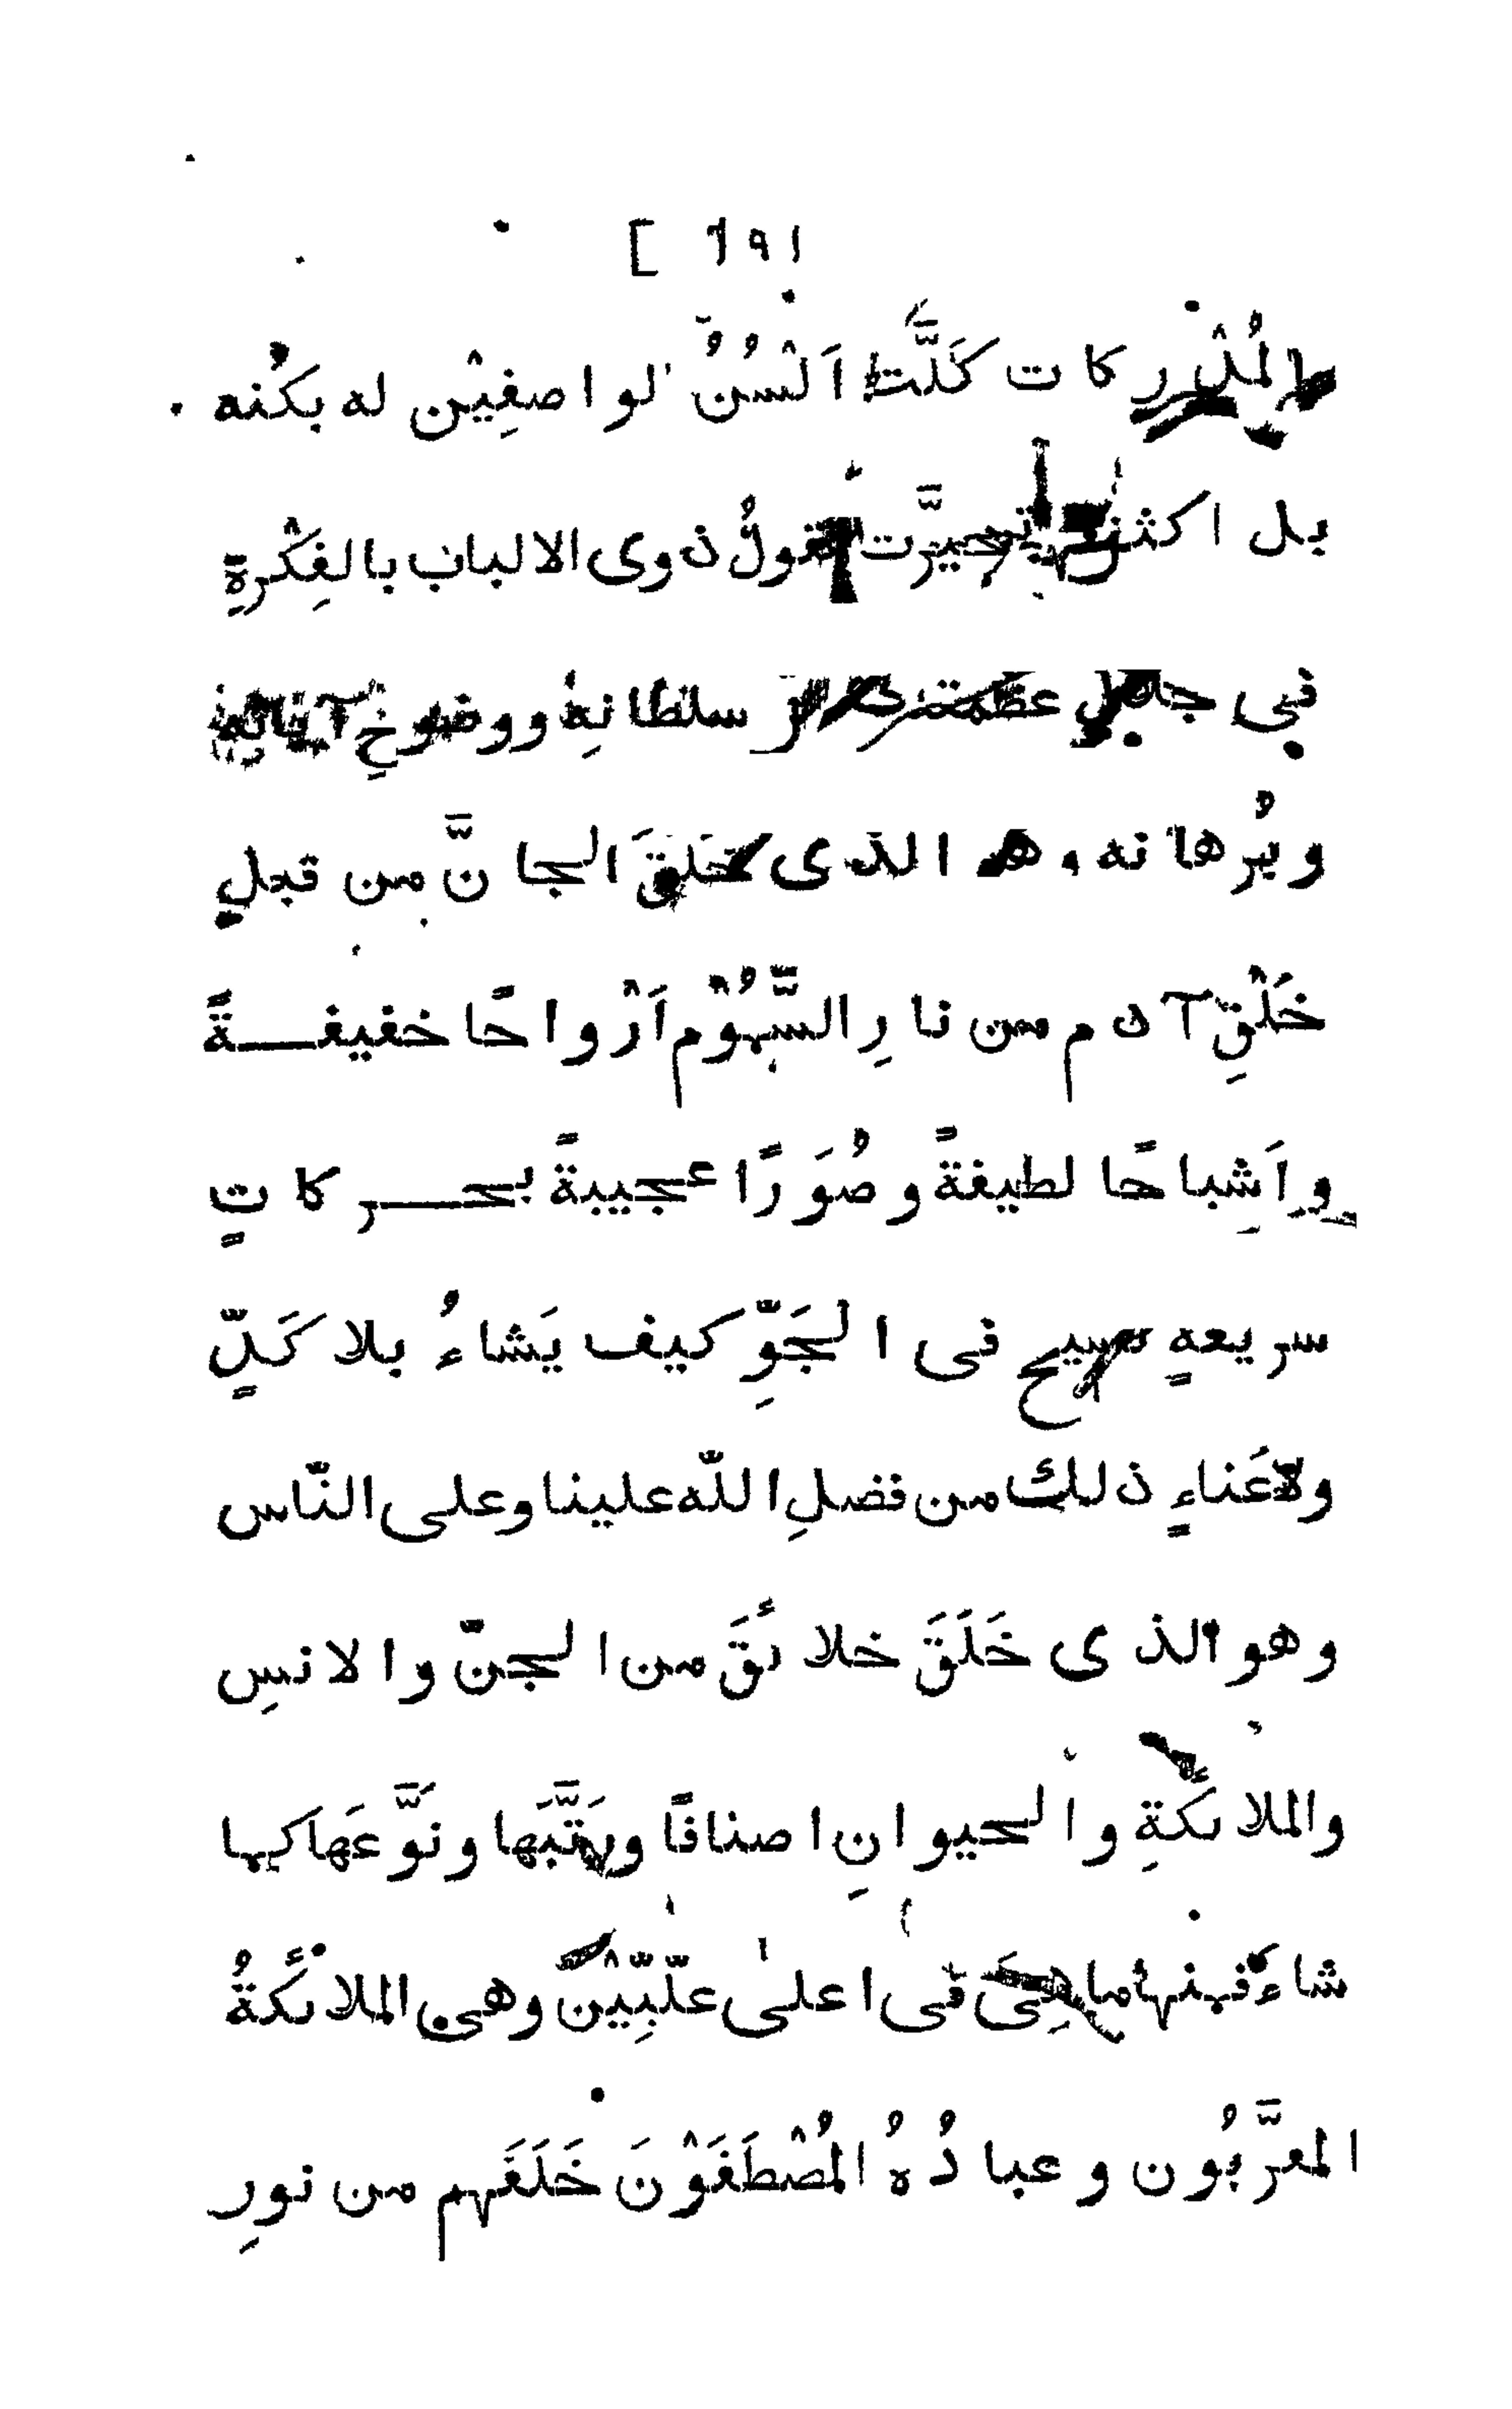 [ ١٩٦
المُدْرِكات كَلَّت اَلْسُنُ الواصفِيْن له بكُنه
بل اكثر تحيَّرت عقولُ ذوى الالباب بالفِكْرةِ
فى جلال عظمته سلطانِه ووضوحِ آياته
وبُرهانه وهو الذى خلقَ الجانَّ من قبلِ
خَلْقِ آدم من نارِ السَّمُوْم اَرْواحًا خفيفةً
واَشباحًا لطيفةً وصُوَرًا عجيبةً بحركاتٍ
سريعةٍ تسيح فى الجَوِّ كيف يَشاءُ بلا كَلٍّ
ولا عَناءٍ ذلك من فضلِ اللّه علينا وعلى النّاس
وهو الذى خَلَقَ خلائقَ من الجنّ والانسِ
والملائكةِ والحيوانِ اصنافًا ورتَّبَها ونَوَّعَها كما
شاء فمنها ما هِىَ فى اعلىٰ علّيِّيْن وهى الملائكةُ
المقرَّبُون وعبادُهُ المُصْطَفَوْنَ خَلَقَهم من نورِ